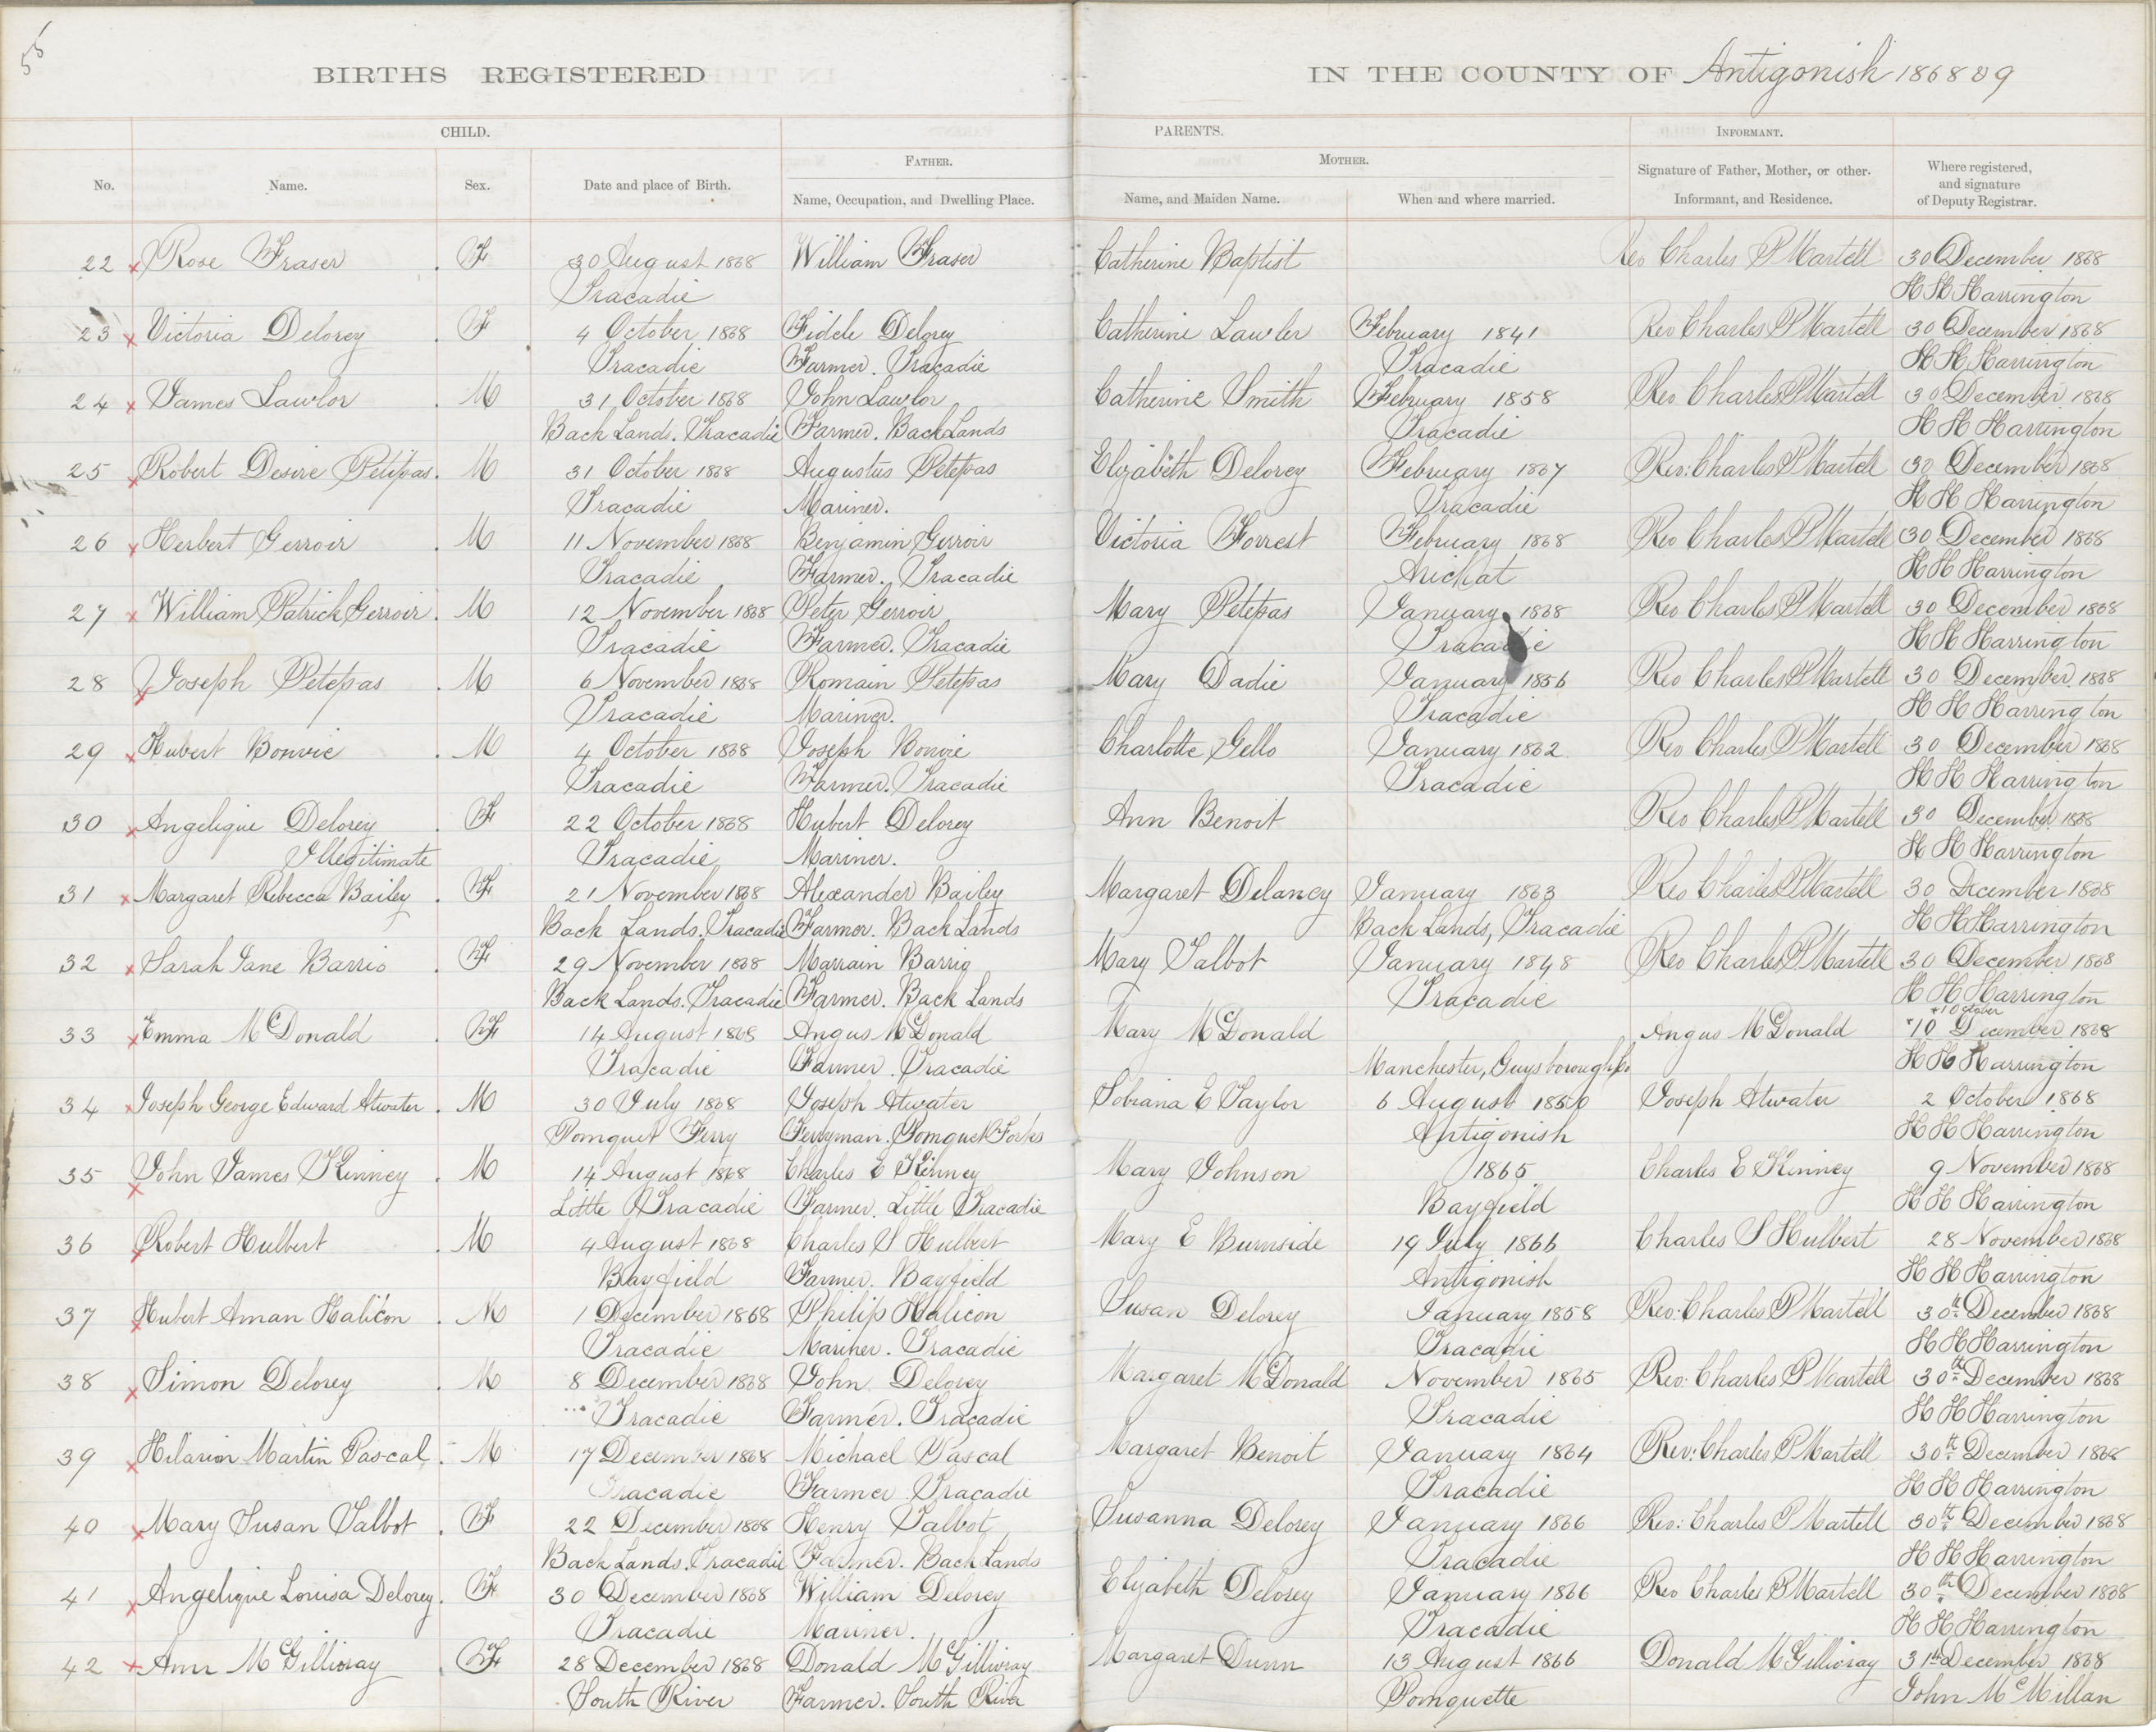 55
BIRTHS REGISTERED IN THE COUNTY OF Antigonish 1868 & 9
CHILD. PARENTS. INFORMANT.
FATHER. MOTHER.
No. Name. Sex. Date and place of Birth. Name, Occupation, and Dwelling Place. Name, and Maiden Name. When and where married. Signature of Father, Mother, or other Informant, and Residence. Where registered, and signature of Deputy Registrar.
22 Rose Fraser F 30 August 1868 William Fraser Catherine Baptist Rev Charles P Martell 30 December 1868
Tracadie H H Harrington
23 Victoria Delorey F 4 October 1868 Fidele Delorey Catherine Lawler February 1841 Rev Charles P Martell 30 December 1868
Tracadie Farmer. Tracadie Tracadie H H Harrington
24 James Lawlor M 31 October 1868 John Lawlor Catherine Smith February 1858 Rev Charles P Martell 30 December 1868
Back Lands. Tracadie Farmer. Back Lands Tracadie H H Harrington
25 Robert Desire Petipas M 31 October 1868 Augustus Petepas Elizabeth Delorey February 1867 Rev: Charles P Martell 30 December 1868
Tracadie Mariner. Tracadie H H Harrington
26 Herbert Gerroir M 11 November 1868 Benjamin Gerroir Victoria Forrest February 1868 Rev Charles P Martell 30 December 1868
Tracadie Farmer. Tracadie Arichat H H Harrington
27 William Patrick Gerroir M 12 November 1868 Peter Gerroir Mary Petepas January 1868 Rev Charles P Martell 30 December 1868
Tracadie Farmer. Tracadie Tracadie H H Harrington
28 Joseph Petepas M 6 November 1868 Romain Petepas Mary Dadie January 1856 Rev Charles P Martell 30 December 1868
Tracadie Mariner. Tracadie H H Harrington
29 Hubert Bonvie M 4 October 1868 Joseph Bonvie Charlotte Gello January 1862 Rev Charles P Martell 30 December 1868
Tracadie Farmer. Tracadie Tracadie H H Harrington
30 Angelique Delorey F 22 October 1868 Hubert Delorey Ann Benoit Rev Charles P Martell 30 December 1868
Illegitimate Tracadie Mariner. H H Harrington
31 Margaret Rebecca Bailey F 21 November 1868 Alexander Bailey Margaret Delancy January 1863 Rev Charles P Martell 30 December 1868
Back Lands. Tracadie Farmer. Back Lands Back Lands, Tracadie H H Harrington
32 Sarah Jane Barrio F 29 November 1868 Marrain Barrio Mary Talbot January 1848 Rev Charles P Martell 30 December 1868
Back Lands. Tracadie Farmer. Back Lands Tracadie H H Harrington
+10 October
33 Emma McDonald F 14 August 1868 Angus McDonald Mary McDonald Angus McDonald +10 December 1868
Tracadie Farmer. Tracadie Manchester, Guysborough Co H H Harrington
34 Joseph George Edward Atwater M 30 July 1868 Joseph Atwater Sobiana E Taylor 6 August 1856 Joseph Atwater 2 October 1868
Pomquet Ferry Ferryman. Pomquet Forks Antigonish H H Harrington
35 John James Kinney M 14 August 1868 Charles E Kinney Mary Johnson 1865 Charles E Kinney 9 November 1868
Little Tracadie Farmer. Little Tracadie Bayfield H H Harrington
36 Robert Hulbert M 4 August 1868 Charles S Hulbert Mary E Burnside 19 July 1866 Charles S Hulbert 28 November 1868
Bayfield Farmer. Bayfield Antigonish H H Harrington
37 Hubert Aman Halicon M 1 December 1868 Philip Halicon Susan Delorey January 1858 Rev: Charles P Martell 30th December 1868
Tracadie Mariner. Tracadie Tracadie H H Harrington
38 Simon Delorey M 8 December 1868 John Delorey Margaret McDonald November 1865 Rev: Charles P Martell 30th December 1868
Tracadie Farmer. Tracadie Tracadie H H Harrington
39 Hilarion Martin Pascal M 17 December 1868 Michael Pascal Margaret Benoit January 1864 Rev: Charles P Martell 30th December 1868
Tracadie Farmer Tracadie Tracadie H H Harrington
40 Mary Susan Talbot F 22 December 1868 Henry Talbot Susanna Delorey January 1866 Rev: Charles P Martell 30th December 1868
Back Lands. Tracadie Farmer. Back Lands Tracadie H H Harrington
41 Angelique Louisa Delorey F 30 December 1868 William Delorey Elizabeth Delorey January 1866 Rev Charles P Martell 30th December 1868
Tracadie Mariner. Tracadie H H Harrington
42 Ann McGillivray F 28 December 1868 Donald McGillivray Margaret Dunn 13 August 1866 Donald McGillivray 31st December 1868
South River Farmer. South River Pomquette John McMillan